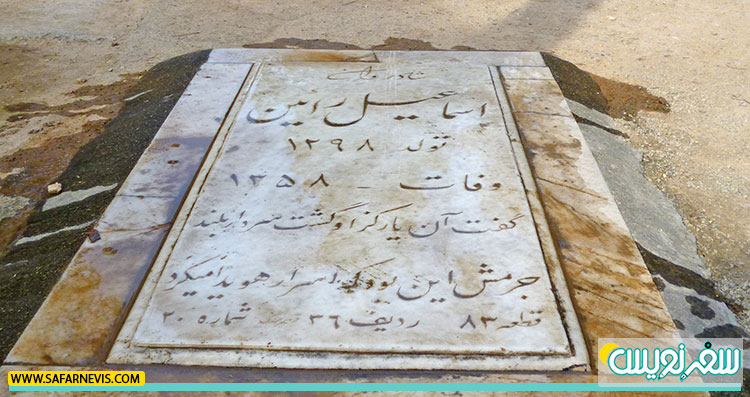 شادروان
اسماعیل رائین
تولد ۱۲۹۸
وفات - ۱۳۵۸
گفت آن یار کز او گشت سر دار بلند
جرمش این بود که اسرار هویدا میکرد
قطعه ۸۳ ردیف ۳۶ شماره ۲۰
WWW.SAFARNEVIS.COM
سفرنویس